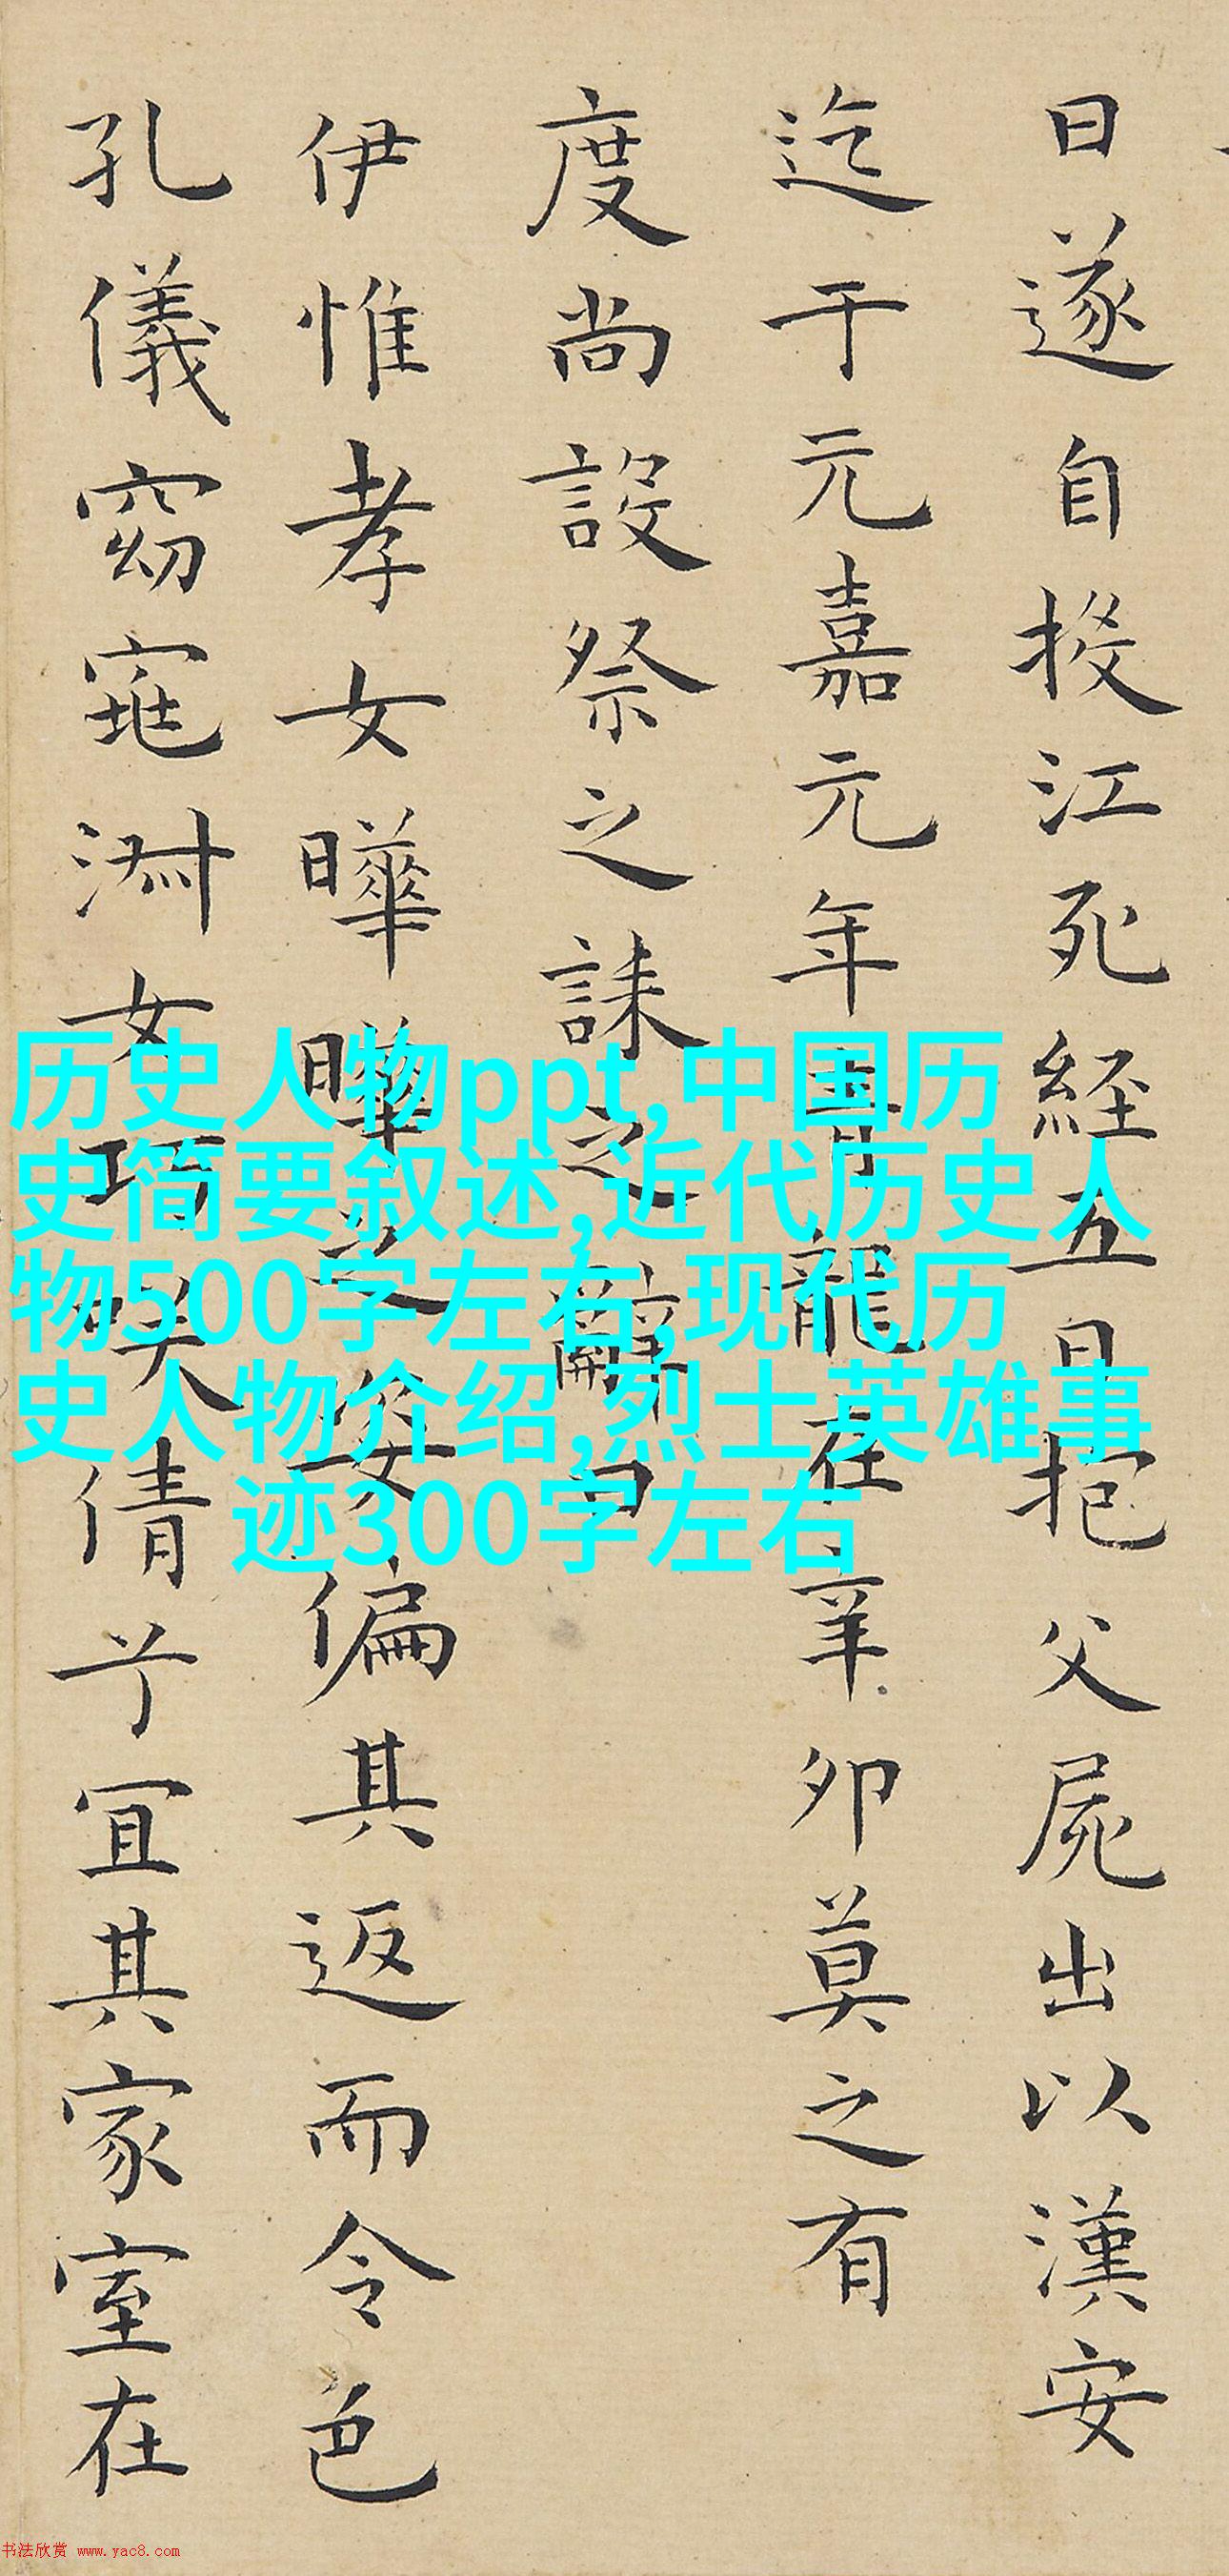 日遂自投江死經五日抱父屍出以漢安
迄于元嘉元年青龍在辛卯莫之有
度尚設祭之誄之辭曰
伊惟孝女曄曄之姿偏其返而令色
孔儀窈窕淑女巧咲倩兮宜其家室在
历史人物ppt,中国历
史简要叙述,近代历史人
物500字左右,现代历
史人物介绍,烈士英雄事
迹300字左右
书法欣赏 www.yac8.com